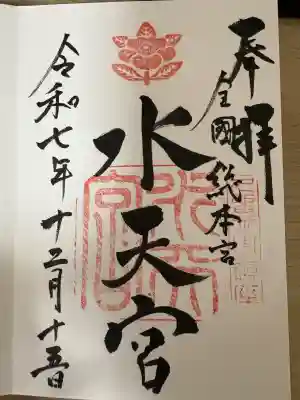 奉拝
全國総本宮
水天宮
令和七年十二月十五日